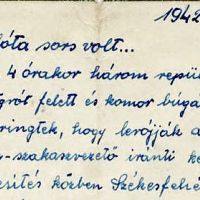 1942
óta sors volt...
4 órakor három repül
grót felett és komor búgá
ringtek, hogy leróják a
-szakaszvezető iránti ke
esítés közben Székesfehé